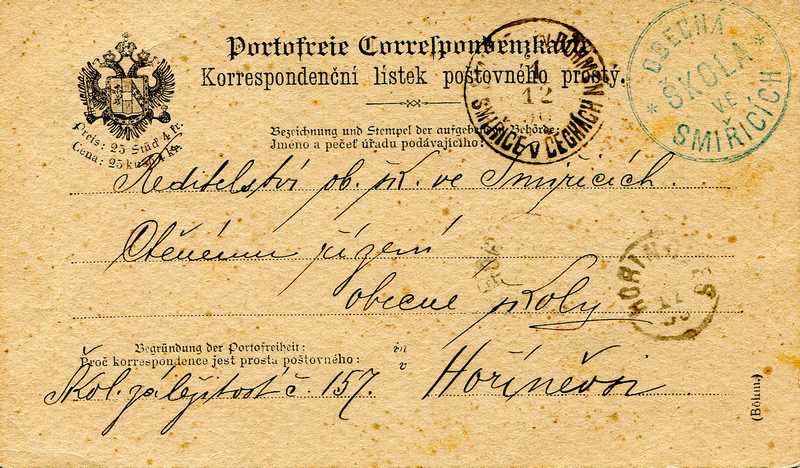 Portofreie Correspondenzkarte
Korrespondenční lístek poštovného prostý.
OBECNÁ
ŠKOLA
VE
SMIŘICÍCH
1
12
SMIŘICE V ČECHÁCH
Preis: 25 Stück 4 kr.
Cena: 25 kusů 4 kr.
Bezeichnung und Stempel der aufgebenden Behörde:
Jméno a pečeť úřadu podávajícího:
Ředitelství ob. šk. ve Smiřicích.
Ctěnému řízení
obecné školy
HOŘIN
Begründung der Portofreiheit:
Proč korrespondence jest prosta poštovného:
in
v
Škol. záležitost č. 157.
Hořiněvsi
(Böhm.)